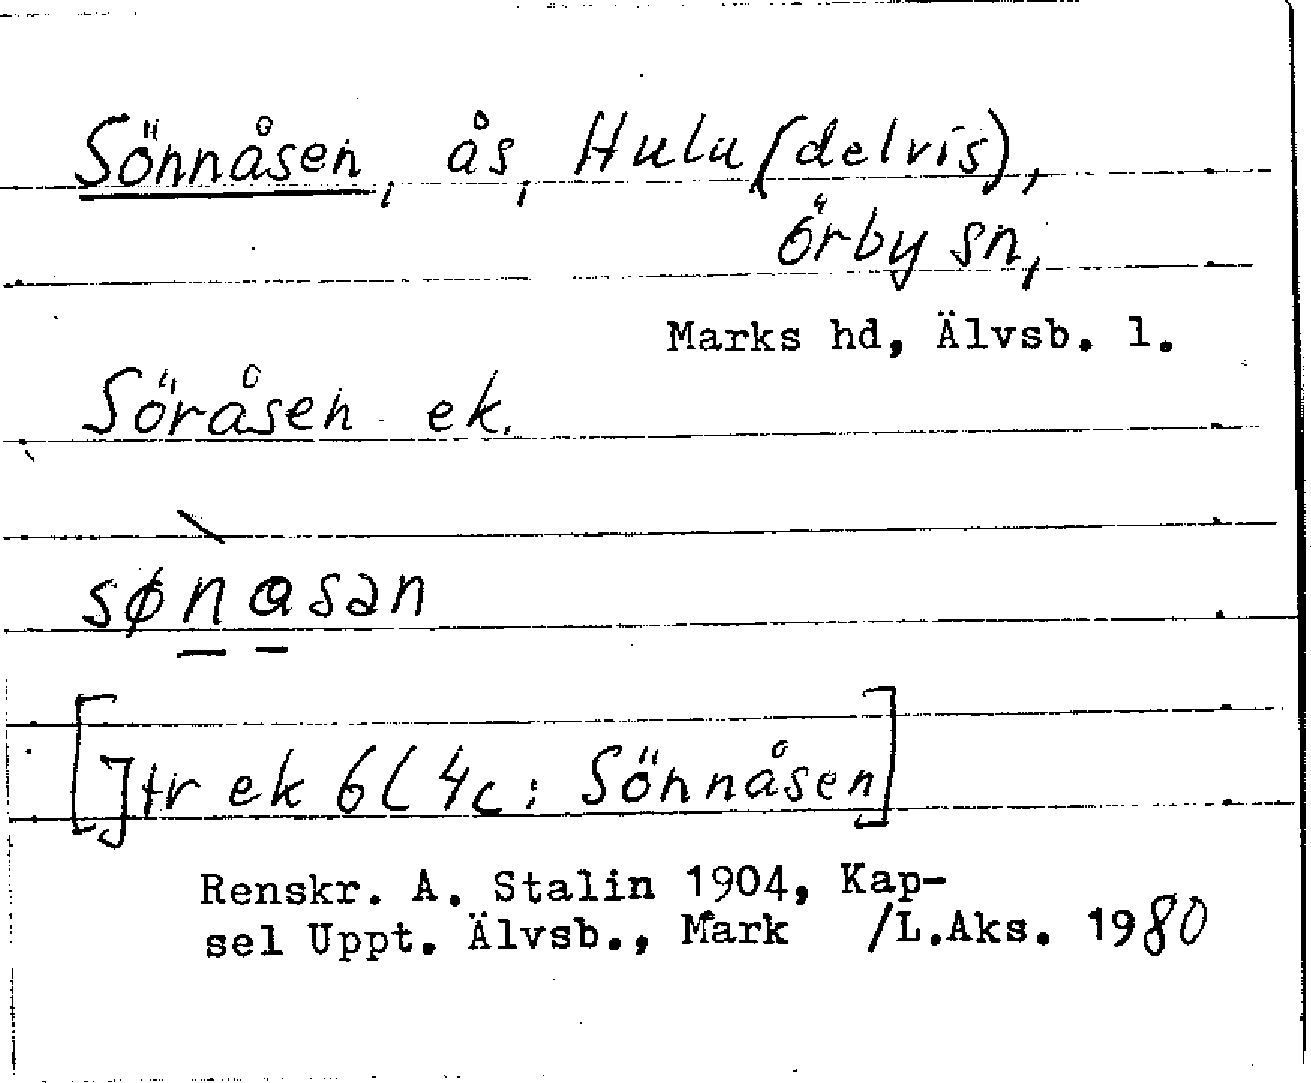 Sönnåsen, ås, Hulu (delvis),
Örby sn,
Marks hd, Älvsb. l.
Söråsen ek.
sønɑsən
[Jfr ek 6C 4c: Sönnåsen]
Renskr. A. Stalin 1904, Kap-
sel Uppt. Älvsb., Mark /L.Aks. 1980